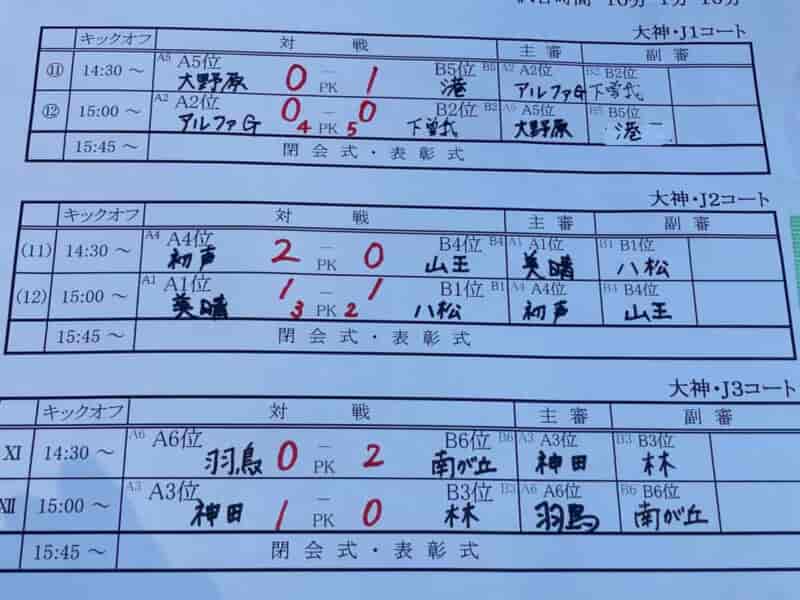 大神・J1コート
キックオフ 対 戦 主 審 副 審
⑪ 14:30 ～ A5 A5位 大野原 0 － PK 1 B5位 港 B5 A2 A2位 アルファG B2 B2位 下曽我
⑫ 15:00 ～ A2 A2位 アルファG 0 － 0 4 PK 5 B2位 下曽我 B2 A5 A5位 大野原 B5 B5位 港
15:45 ～ 閉 会 式 ・ 表 彰 式
大神・J2コート
キックオフ 対 戦 主 審 副 審
(11) 14:30 ～ A4 A4位 初声 2 － PK 0 B4位 山王 B4 A1 A1位 美晴 B1 B1位 八松
(12) 15:00 ～ A1 A1位 美晴 1 － 1 3 PK 2 B1位 八松 B1 A4 A4位 初声 B4 B4位 山王
15:45 ～ 閉 会 式 ・ 表 彰 式
大神・J3コート
キックオフ 対 戦 主 審 副 審
XI 14:30 ～ A6 A6位 羽鳥 0 － PK 2 B6位 南が丘 B6 A3 A3位 神田 B3 B3位 林
XII 15:00 ～ A3 A3位 神田 1 － PK 0 B3位 林 B3 A6 A6位 羽鳥 B6 B6位 南が丘
15:45 ～ 閉 会 式 ・ 表 彰 式